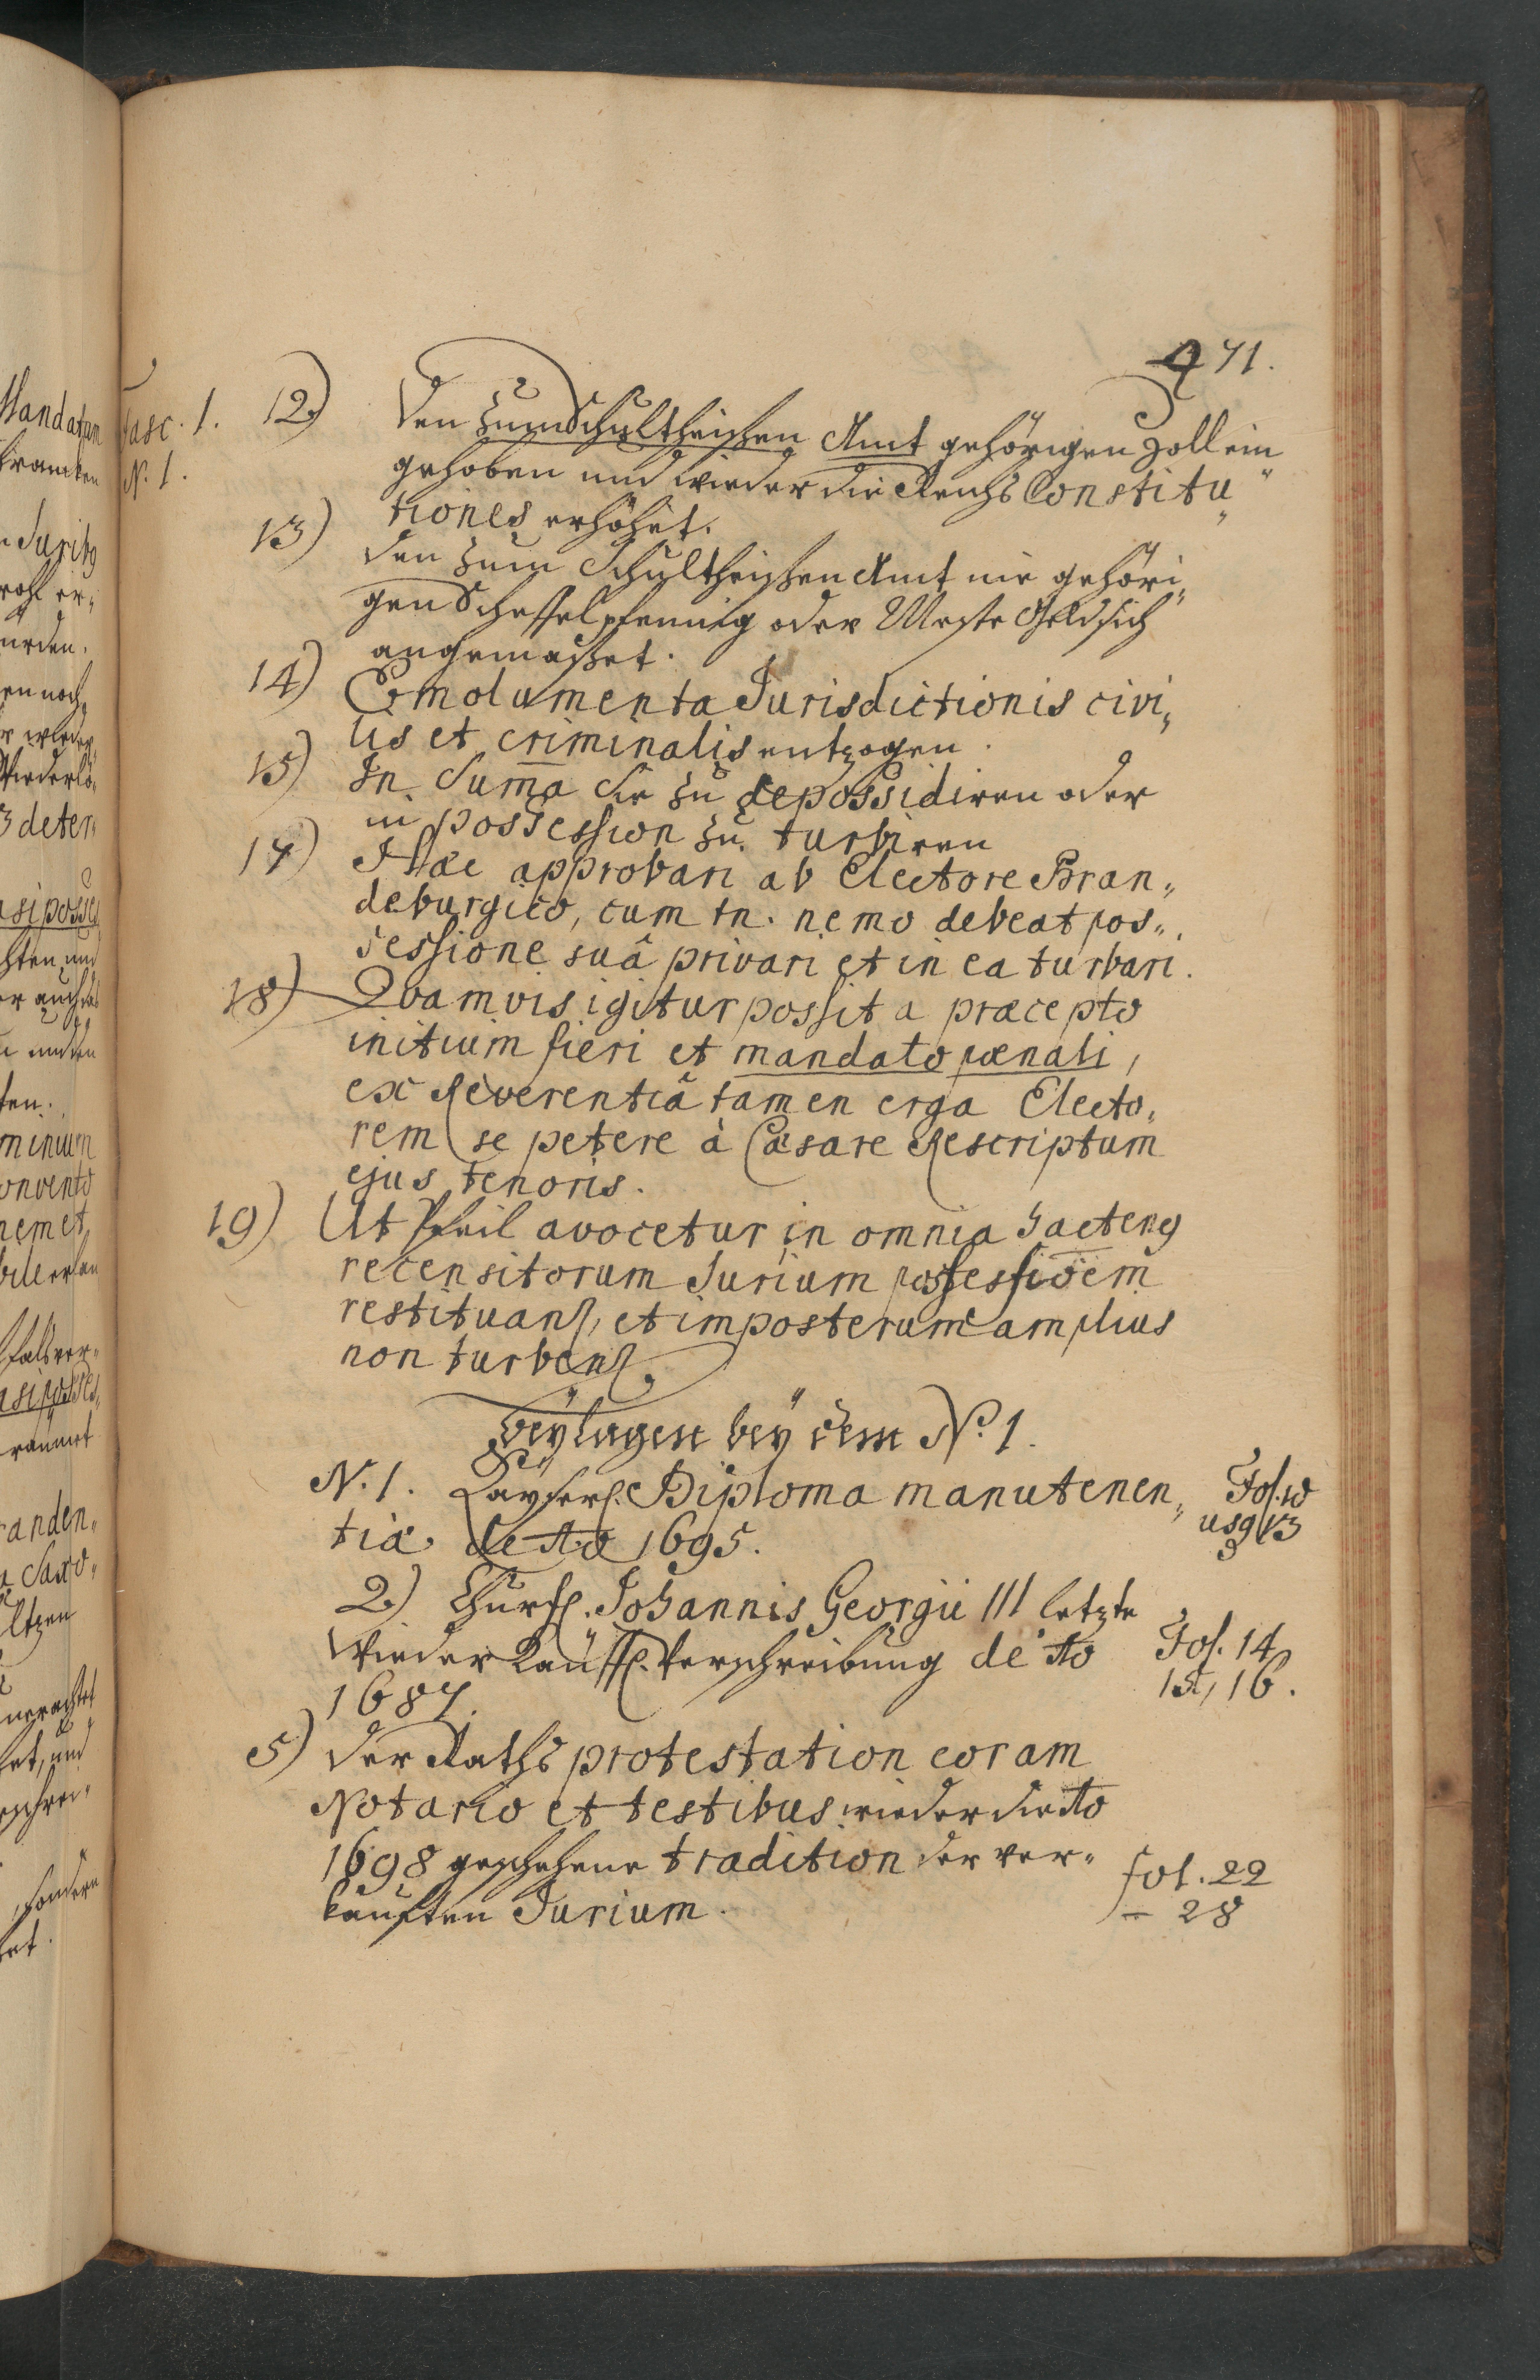 471.
Fasc. 1. 12) Den zum Schultheißen Amt gehörigen Zoll ein„
N. 1. gehoben und wieder die Reichs Constitu„
tiones erhöhet.
13) Den zum Schultheißen Amt nie gehöri„
gen Scheffelpfennig oder Meße Geld sich
angemaßet.
14) Emolumenta Jurisdictionis civi„
lis et criminalis entzogen.
15) In Sum̄a Sie zu depossidiren oder
in possession zu turbiren
17) Hæc approbari ab Electore Bran„
deburgico, cum tn. nemo debeat pos„
sessione suâ privari et in ea turbari.
18) Qvamvis igitur possit a præcepto
initium fieri et mandato pœnali,
ex Reverentiâ tamen erga Electo„
rem se petere à Cæsare Rescriptum
ejus tenoris.
19) Ut avocetur in omnia hacteng
recensitorum Jurium possessiōem
restituan, et imposterum amplius
non turben.
Beylagen bey dem No. 1.
N. 1. Kayserl. Diploma manutenen„ Fol. 10
tiæ de Ao 1695. usq 13
2) Churfl. Johannis Georgii III letzte
Wieder Käuffl. Verschreibung de Ao Fol. 14
1687. 15, 16.
5) Der Raths protestation coram
Notario et testibus wieder die Ao
1698 geschehene tradition der ver„ fol. 22
kaufften Jurium. – 28